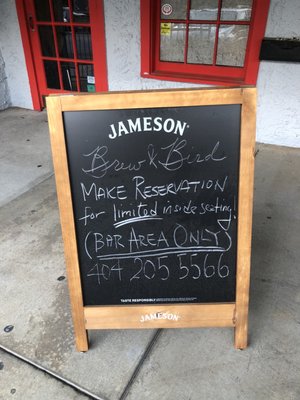 JAMESON
Brew & Bird
MAKE RESERVATION
for limited inside seating.
(BAR AREA ONLY)
404 205 5566
TASTE RESPONSIBLY.
JAMESON